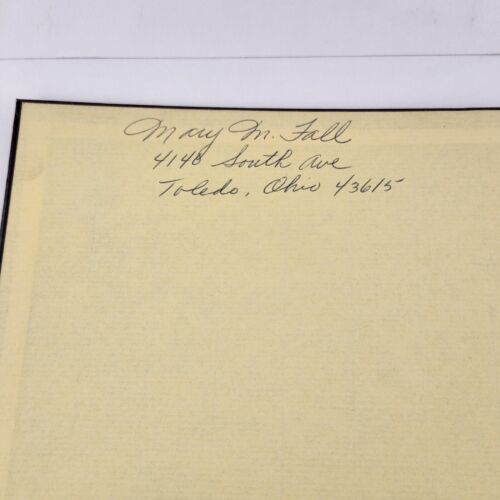 Mary M. Fall
4148 South Ave
Toledo, Ohio 43615